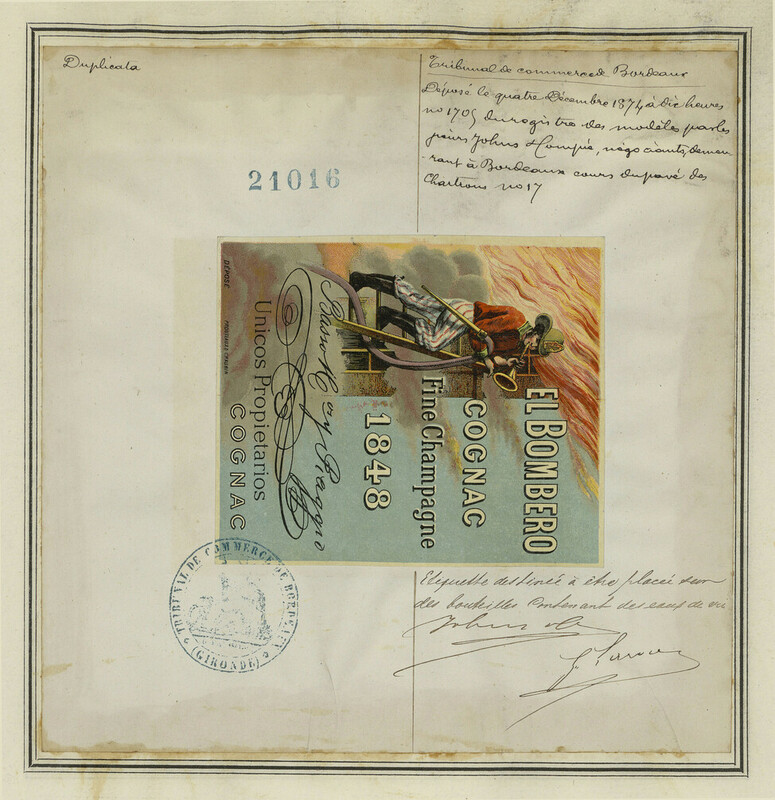 Duplicata
Tribunal de commerce de Bordeaux
Déposé le quatre Décembre 1874 à dix heures
no 1705 du registre des modèles par les
sieurs Johns & Compie, négociants, demeu
-rant à Bordeaux cours du pavé des
Chartrons no 17
21016
EL BOMBERO
COGNAC
Fine Champagne
1848
Raggio
Unicos Propietarios
COGNAC
DÉPOSÉ
TRIBUNAL DE COMMERCE DE BORDEAUX
(GIRONDE)
Etiquette destinée à être placée sur
des bouteilles contenant des eaux de vie
Johns